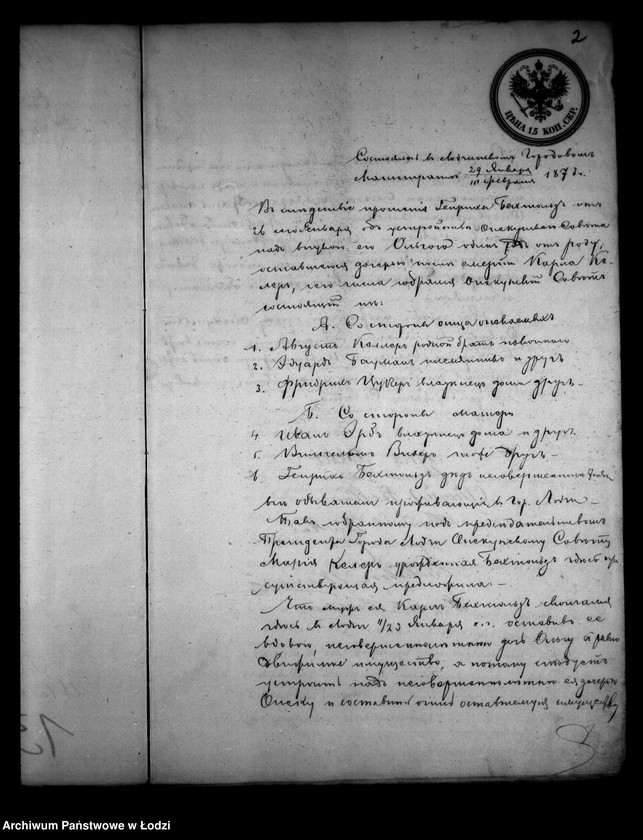 2
ЦѢНА 15 КОП. СЕР.
Состоялось въ Лодзинскомъ Городовомъ
Магистратѣ 29 Января / 10 Февраля 187 г.
Въ слѣдствіе прошенія Генриха Бехтольдъ отъ
26 сего Января объ устройствѣ Опекунскаго Совѣта
надъ внукою его Ольгою одинъ годъ отъ роду,
оставшеюся дочерью послѣ смерти Карла Ке-
леръ, сего числа собрался Опекунскій Совѣтъ
состоящій изъ:
А. Со стороны отца опекаемыхъ
1. Августъ Келлеръ родной братъ покойнаго
2. Эдуардъ Бауманъ племянникъ и другъ
3. Фридрихъ Цукеръ владѣлецъ дома другъ
Б. Со стороны матери
4. Иванъ Эрбъ владѣлецъ дома и другъ
5. Вильгельмъ тоже другъ
6. Генрихъ Бехтольдъ дѣдъ несовершеннолѣтней
всѣ обыватели проживающіе въ Гор. Лодзи
Такъ собранному подъ предсѣдательствомъ
Президента Города Лодзи Опекунскому Совѣту
Марія Келеръ урожденная Бехтольдъ здѣсь при-
сутствующая предложила
Что мужъ ея Карлъ Бехтольдъ скончался
здѣсь въ Лодзи 11/23 Января с. г. оставивъ ее
вдовою, несовершеннолѣтнюю дочь Ольгу и равно
движимое имущество, а потому слѣдуетъ
устроить надъ несовершеннолѣтнею ея дочерью
Опеку и составить опись оставшемуся имуществу
13
Archiwum Państwowe w Łodzi